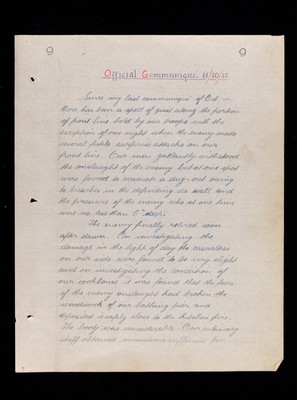 9 9
Official Communique 11/10/15
Since my last communique of Oct —
there has been a spell of quiet along the portion
of front line held by our troops with the
exception of one night when the enemy made
several futile surprise attacks on our
front line. Our men gallantly withstood
the onslaught of the enemy but at one spot
were forced to evacuate a dug-out owing
to breaches in the defending sea wall and
the pressure of the enemy who at one time
was no less than 6" deep.
The enemy finally retired soon
after dawn. On investigating the
damage in the light of day the casualties
on our side were found to be very slight
and on investigating the condition of
our cookhouse it was found that the force
of the enemy onslaught had broken the
woodwork of our bathing pier and
deposited it safely close to the kitchen fire.
The booty was considerable. Our culinary
staff obtained